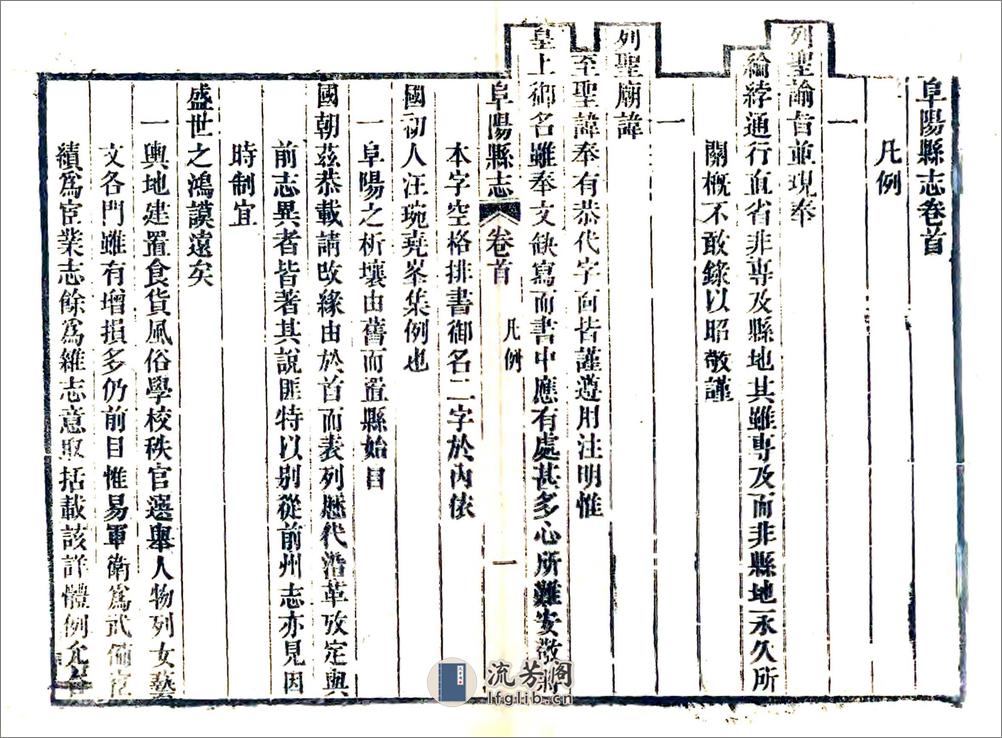 阜陽縣志卷首
凡例
一
列聖諭旨並現奉
綸綍通行直省非專及縣地其雖專及而非縣地永久所
關概不敢錄以昭敬謹
一
列聖廟諱
至聖諱奉有恭代字面皆謹遵用注明惟
皇上御名雖奉文缺寫而書中應有處甚多心所難安敬將
阜陽縣志 卷首 凡例 一
本字空格排書御名二字於內依
國初人汪琬堯峯集例也
一阜陽之析壤由舊而置縣始自
國朝茲恭載請改緣由於首而表列歷代沿革攷定與
前志異者皆著其說匪特以别從前州志亦見因
時制宜
盛世之鴻謨遠矣
一輿地建置食貨風俗學校秩官選舉人物列女藝
文各門雖有增損多仍前目惟易軍衛為武備宦
績為宦業志餘為雜志意取括載該詳體例允
流芳阁
lfglib.cn